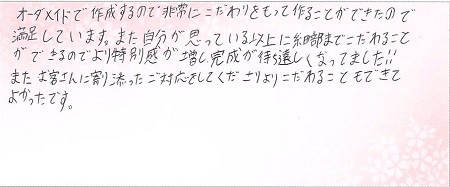 オーダメイドで作成するので非常にこだわりをもって作ることができたので
満足しています。また自分が思っている以上に細部までこだわること
ができるのでより特別感が増し、完成が待ち遠しくなってました!!
またお客さんに寄り添ったご対応をしてくださりよりこだわることもできて
よかったです。